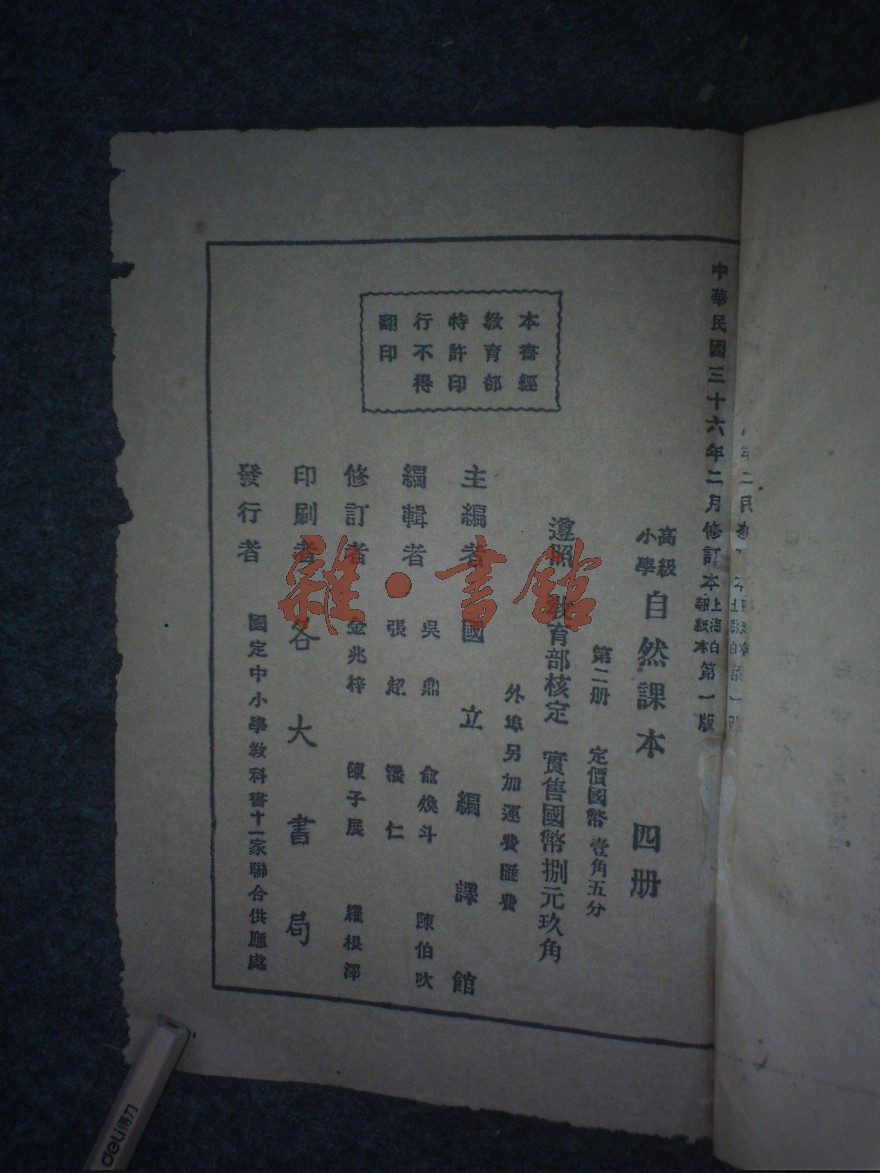 中華民國三十六年二月修訂本上海白報紙本第一版
高級小學自然課本 四册
第二册 定價國幣壹角五分
遵照 教育部核定 實售國幣捌元玖角
外埠另加運費匯費
本書經
教育部
特許印
行不得
翻印
主編者 國立編譯館
編輯者 吳鼎 俞煥斗 陳伯吹
張超 潘仁
修訂者 金兆梓 陳子展 羅根澤
印刷者 各大書局
發行者 國定中小學教科書十一家聯合供應處
雜·書館
deli得力